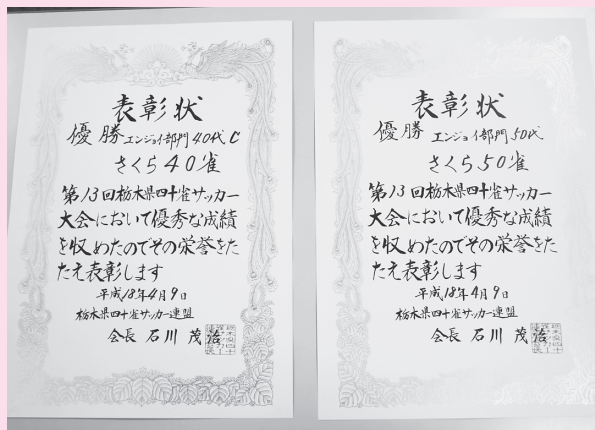 表彰状
優勝 エンジョイ部門40代C
さくら40雀
第13回栃木県四十雀サッカー
大会において優秀な成績
を収めたのでその栄誉をた
たえ表彰します
平成18年4月9日
栃木県四十雀サッカー連盟
会長 石川 茂治
表彰状
優勝 エンジョイ部門50代
さくら50雀
第13回栃木県四十雀サッカー
大会において優秀な成績
を収めたのでその栄誉をた
たえ表彰します
平成18年4月9日
栃木県四十雀サッカー連盟
会長 石川 茂治